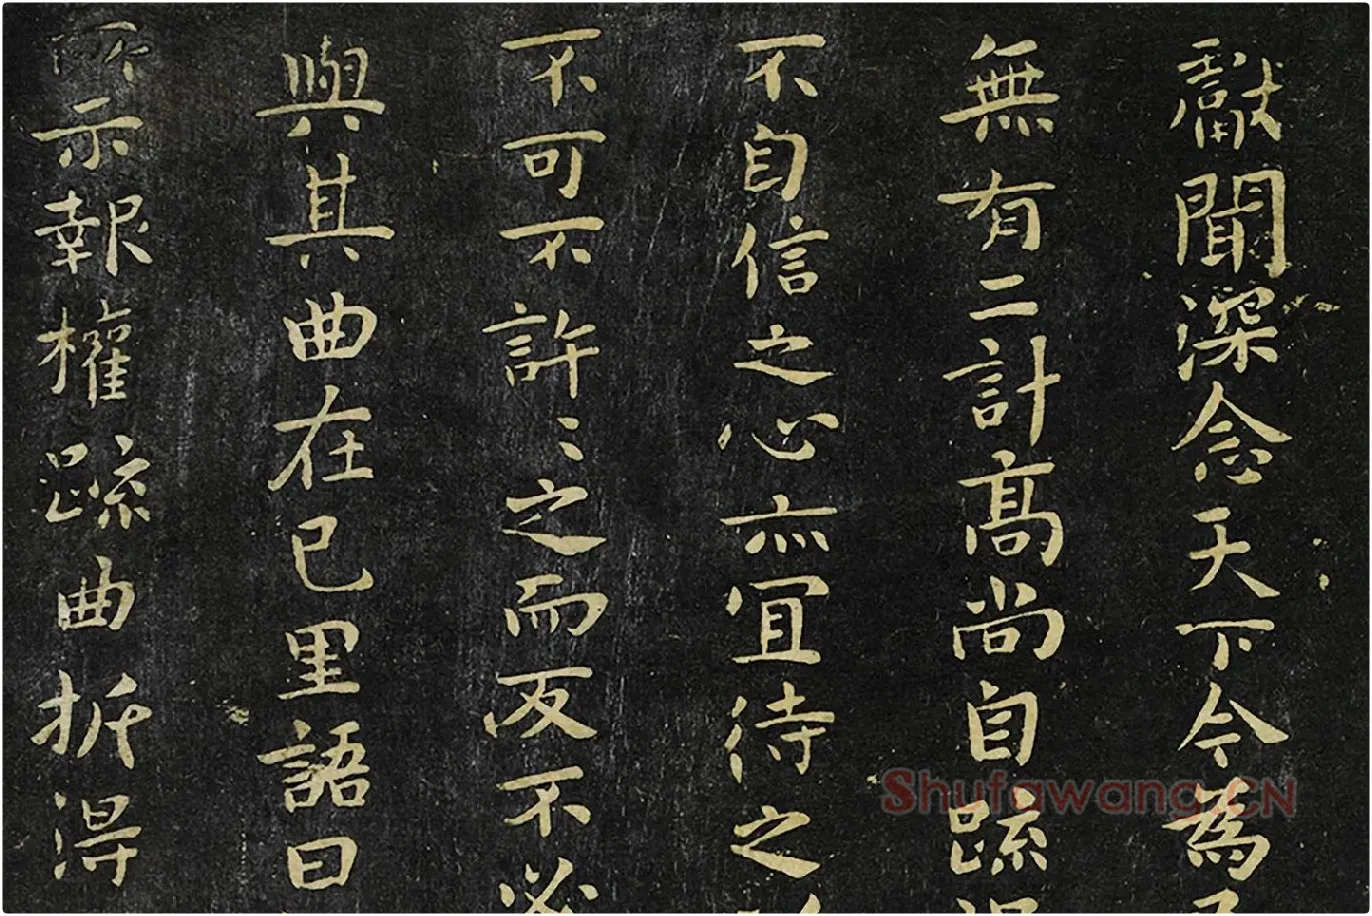 獻聞深念天下今為
無有二計高尚自疏
不自信之心亦宜待之
不可不許〻之而反不必
與其曲在己里語曰
所示報權疏曲折得
Shufawang.CN